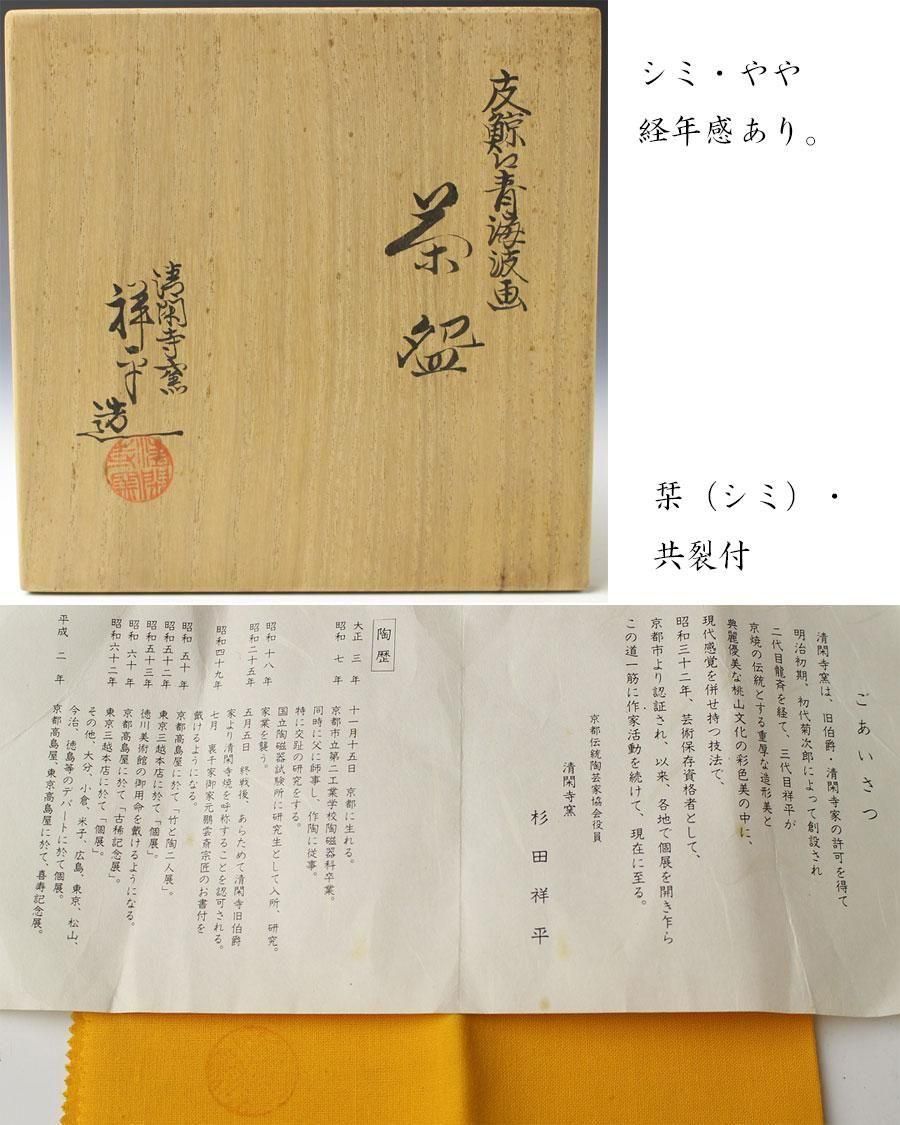 皮鯨ニ青海波画
茶盌
清閑寺窯
祥平造
清閑寺窯
シミ・やや
経年感あり。
栞（シミ）・
共裂付
ごあいさつ
清閑寺窯は、旧伯爵・清閑寺家の許可を得て
明治初期、初代菊次郎によって創設され
二代目龍斎を経て、三代目祥平が
京焼の伝統とする重厚な造形美と
典麗優美な桃山文化の彩色美の中に、
現代感覚を併せ持つ技法で、
昭和三十二年、芸術保存資格者として、
京都市より認証され、以来、各地で個展を開き乍ら
この道一筋に作家活動を続けて、現在に至る。
京都伝統陶芸家協会役員
清閑寺窯
杉田祥平
陶歴
大正三年 十一月十五日 京都に生れる。
昭和七年 京都市立第二工業学校陶磁器科卒業。
同時に父に師事し、作陶に従事。
特に交趾の研究をする。
昭和十八年 国立陶磁器試験所に研究生として入所、研究。
家業を襲う。
昭和二十五年 五月五日 終戦後、あらためて清閑寺旧伯爵
家より清閑寺焼を呼称することを認可される。
昭和四十九年 七月 裏千家御家元鵬雲斎宗匠のお書付を
戴けるようになる。
昭和五十年 京都高島屋に於て「竹と陶二人展」。
昭和五十二年 東京三越本店に於て「個展」。
昭和五十三年 徳川美術館の御用命を戴けるようになる。
昭和六十年 京都高島屋に於て「古稀記念展」。
昭和六十二年 東京三越本店に於て「個展」。
その他、大分、小倉、米子、広島、東京、松山、
今治、徳島等のデパートに於て個展。
平成二年 京都高島屋、東京高島屋に於て、喜寿記念展。